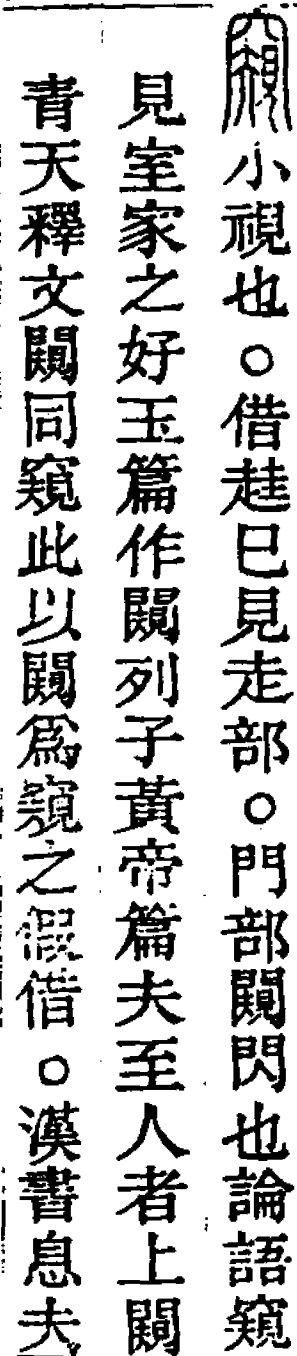 窺小視也○借趌巳見走部○門部闚閃也論語窺
見室家之好玉篇作闚列子黃帝篇夫至人者上闚
青天釋文闚同窺此以闚爲窺之假借○漢書息夫